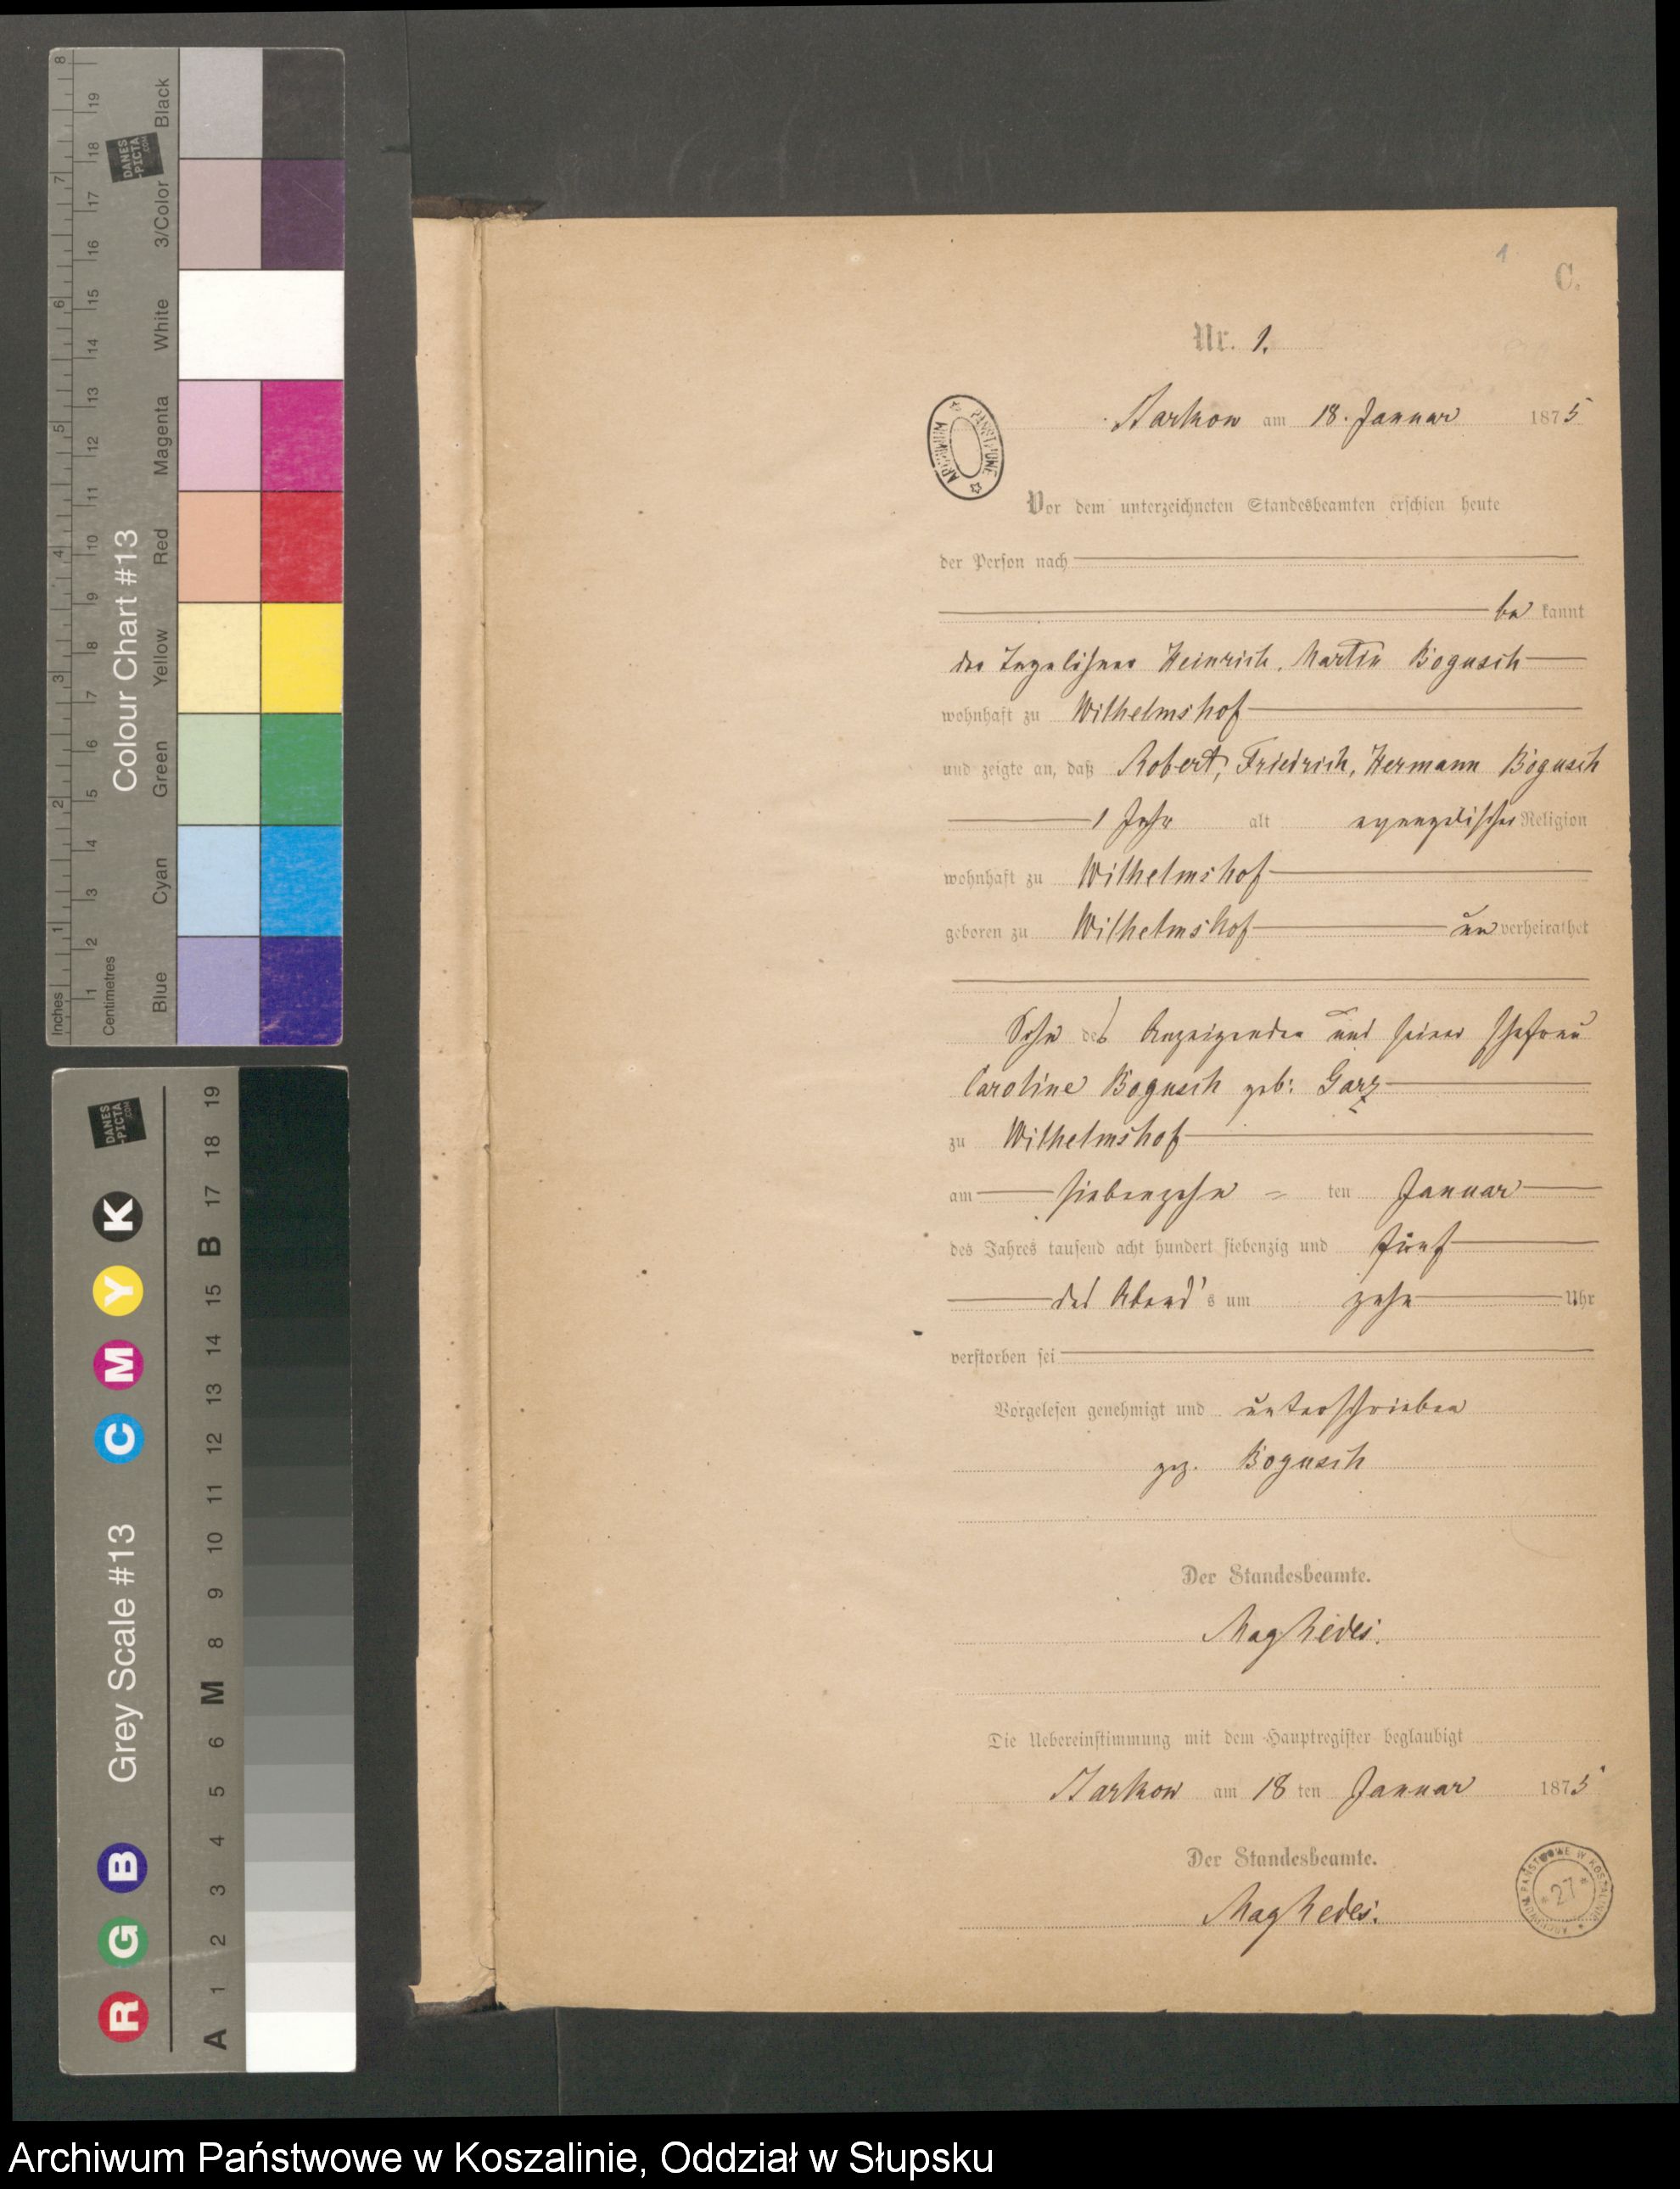 8
7
6
5
4
3
2
1
Inches
19
18
17
16
15
14
13
12
11
10
9
8
7
6
5
4
3
2
1
Centimetres
DANES
-PICTA
.COM
Colour Chart #13
Black
3/Color
White
Magenta
Red
Yellow
Green
Cyan
Blue
DANES
-PICTA
.COM
Grey Scale #13
R G B C M Y K
A 1 2 3 4 5 6 M 8 9 10 11 12 13 14 15 B 17 18 19
1
C.
Nr. 1.
Starkow am 18. Januar 1875
ARCHIWUM PAŃSTWOWE
Vor dem unterzeichneten Standesbeamten erschien heute
der Person nach
be kannt
der Tagelöhner Heinrich, Martin Bogusch
wohnhaft zu Wilhelmshof
und zeigte an, daß Robert, Friedrich, Hermann Bogusch
1 Jahr alt evangelischer Religion
wohnhaft zu Wilhelmshof
geboren zu Wilhelmshof un verheirathet
Sohn des Anzeigenden und seiner Ehefrau
Caroline Bogusch geb: Garz
zu Wilhelmshof
am siebenzehn ten Januar
des Jahres tausend acht hundert siebenzig und fünf
des Abend's um zehn Uhr
verstorben sei
Vorgelesen genehmigt und unterschrieben
gez. Bogusch
Der Standesbeamte.
Die Uebereinstimmung mit dem Hauptregister beglaubigt
Starkow am 18 ten Januar 1875
Der Standesbeamte.
ARCHIWUM PAŃSTWOWE W KOSZALINIE
* 27 *
Archiwum Państwowe w Koszalinie, Oddział w Słupsku